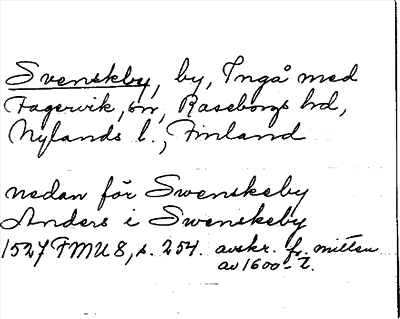 Svenskby, by, Ingå med
Fagervik, sn, Raseborgs hd,
Nylands l., Finland
nedan för Swenskeby
Anders i Swenskeby
1527 FMU 8, s. 254. avskr. fr. mitten
av 1600-t.